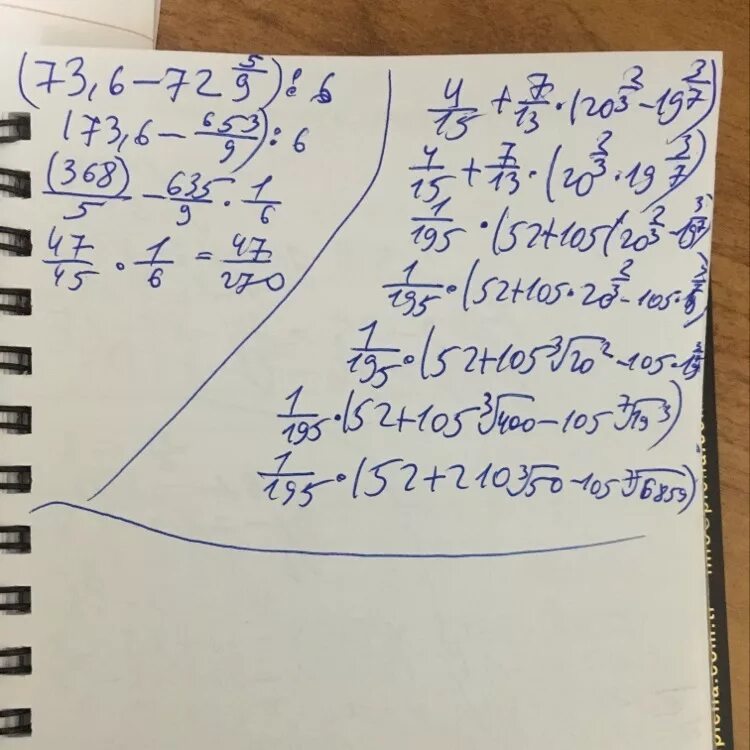 (73,6-72 5/9):6
(73,6-653/9):6
(368)/5-635/9·1/6
47/45·1/6=47/270
4/15+7/13·(20^2/3-19^3/7)
4/15+7/13·(20^2/3·19^3/7)
1/195·(52+105(20^2/3-19^3/7)
1/195·(52+105·20^2/3-105·
1/195·(52+105∛20²-105·19
1/195·(52+105∛400-105⁷√19³)
1/195·(52+210∛50-105⁷√6859)